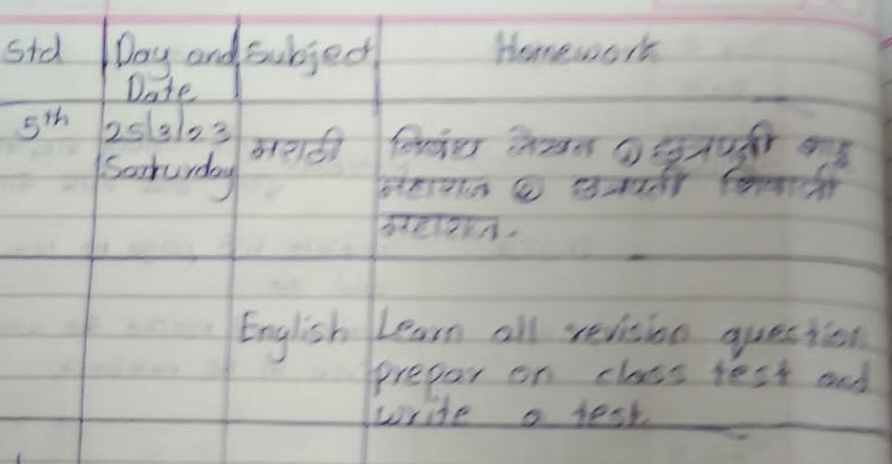 Std Day and Subject Homework
Date
5th 25/3/23 मराठी निबंध लेखन ① छत्रपती शाहू
Saturday महाराज ② छत्रपती शिवाजी
महाराज.
English Learn all revision question
prepar on class test and
write a test.